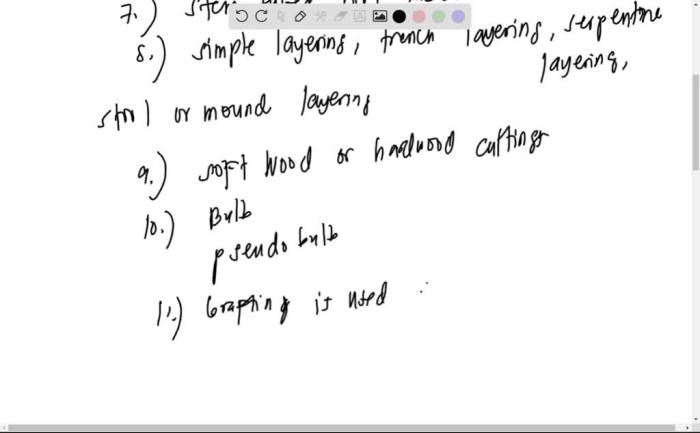 7.)
8.) simple layering, trench layering, serpentine
layering,
stool or mound layering
9.) soft wood or hardwood cuttings
10.) Bulb
pseudo bulb
11.) Grafting is used